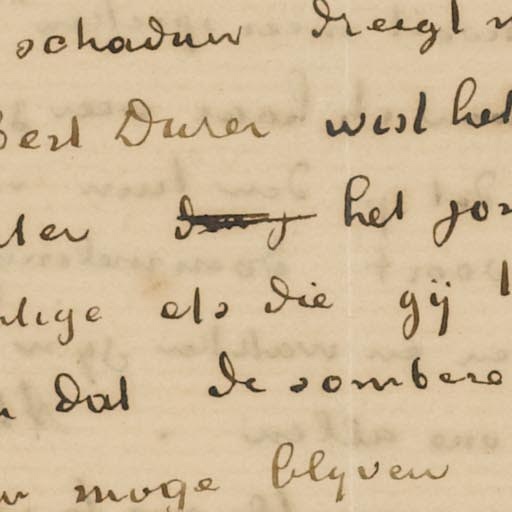 schaduw dreigt
Dürer wist het
het jon
als die gij
dat de sombere
moge blyven